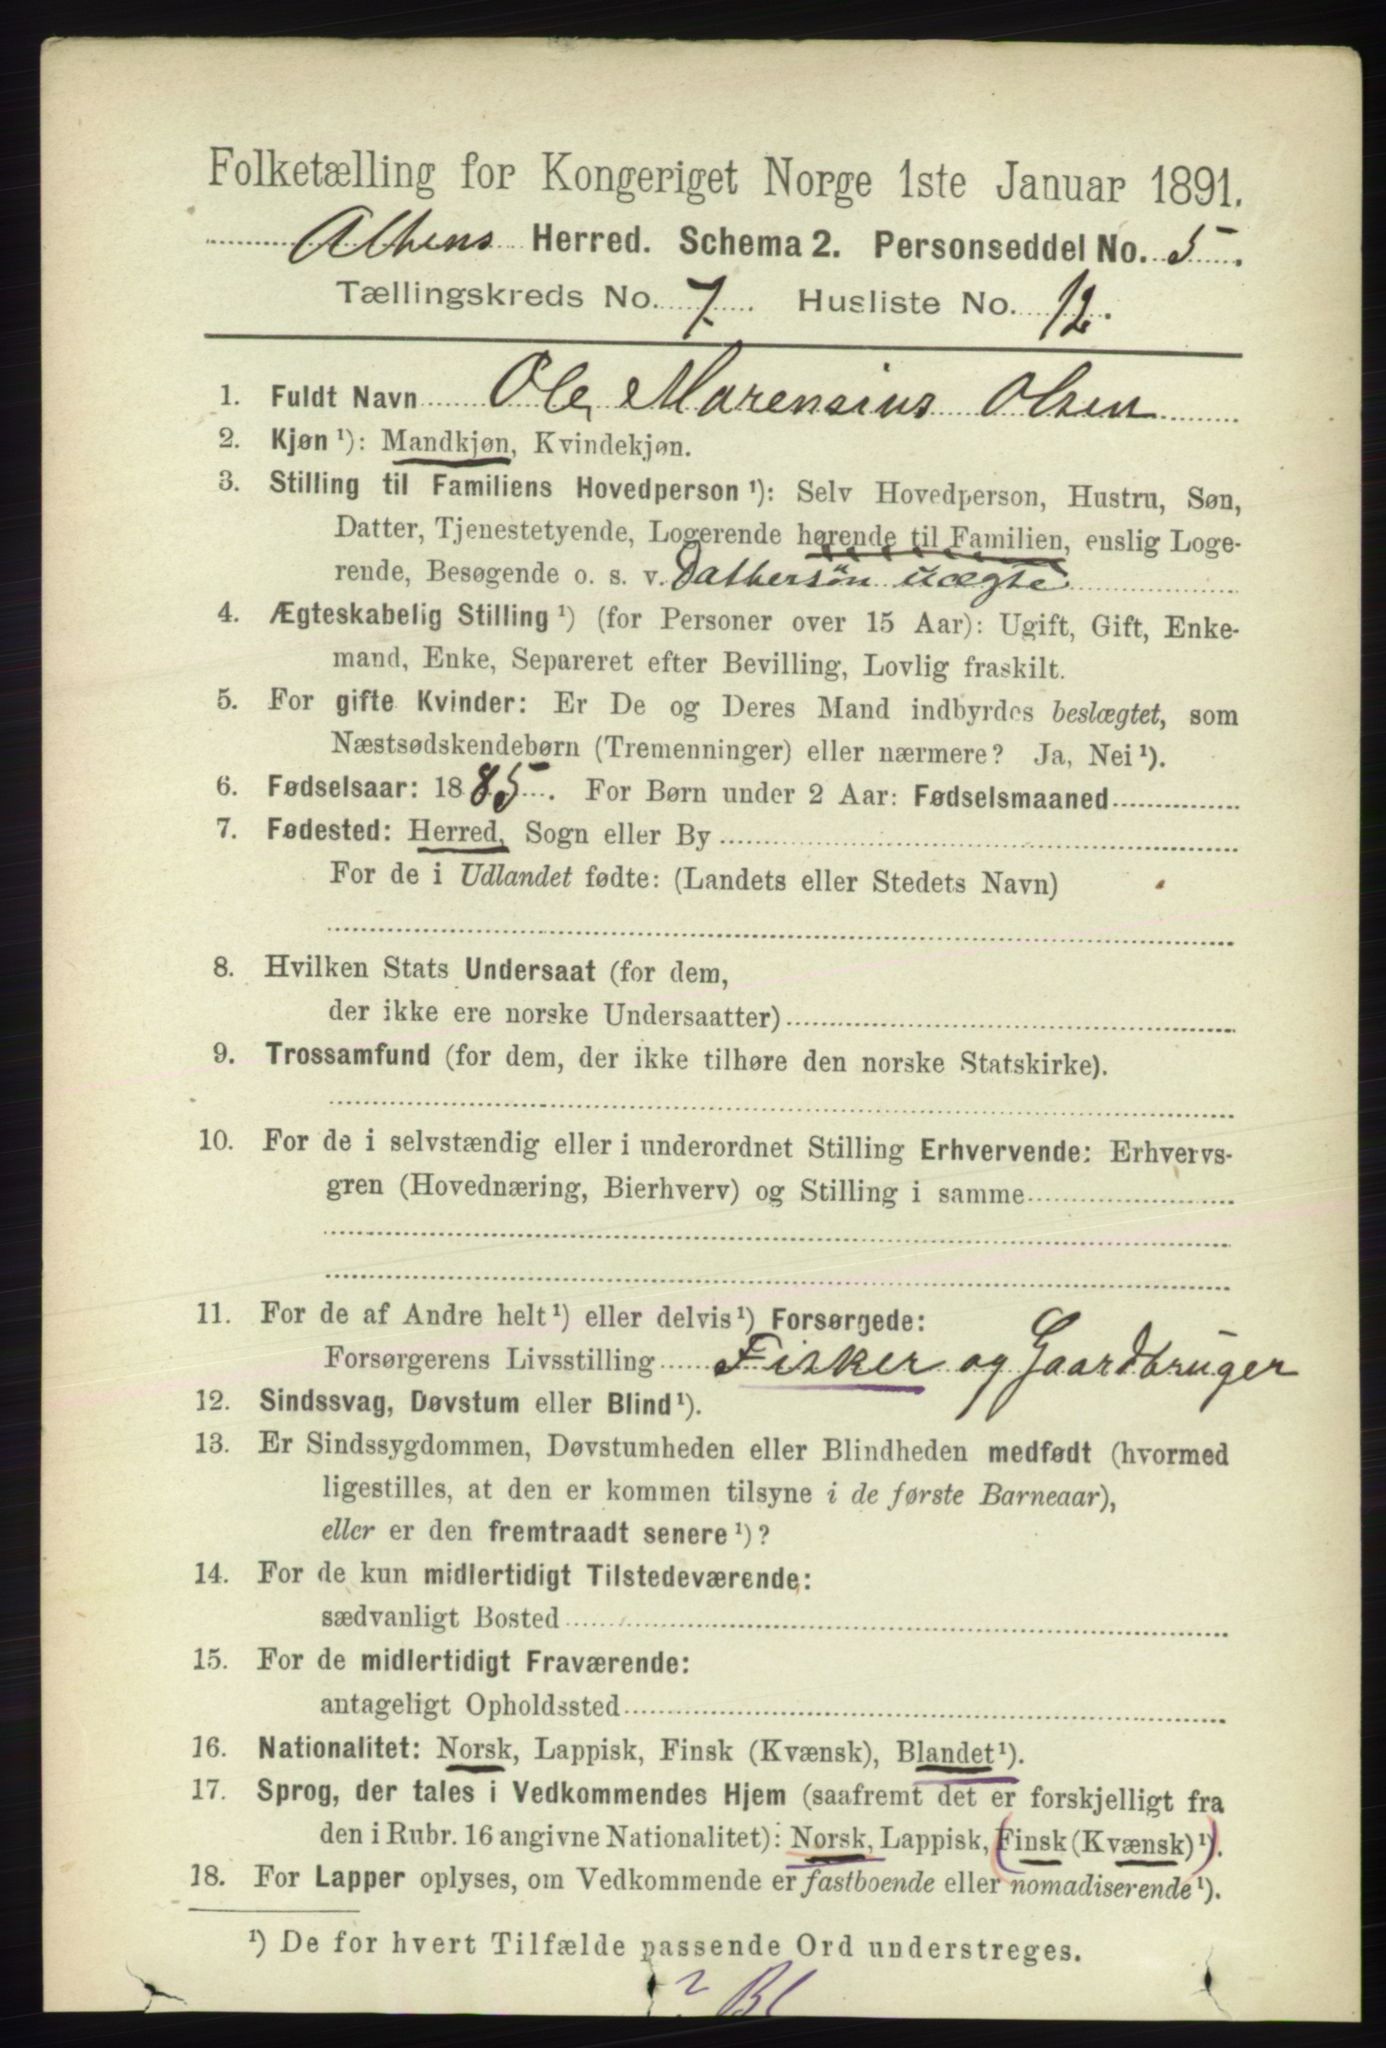 Folketælling for Kongeriget Norge 1ste Januar 1891.
Althens Herred. Schema 2. Personseddel No. 5.
Tællingskreds No. 7. Husliste No. 12.
1. Fuldt Navn Ole Marensius Olsen
2. Kjøn ¹): Mandkjøn, Kvindekjøn.
3. Stilling til Familiens Hovedperson ¹): Selv Hovedperson, Hustru, Søn,
Datter, Tjenestetyende, Logerende hørende til Familien, enslig Loge-
rende, Besøgende o. s. v. Dattersön uægte
4. Ægteskabelig Stilling ¹) (for Personer over 15 Aar): Ugift, Gift, Enke-
mand, Enke, Separeret efter Bevilling, Lovlig fraskilt.
5. For gifte Kvinder: Er De og Deres Mand indbyrdes beslægtet, som
Næstsødskendebørn (Tremenninger) eller nærmere? Ja, Nei ¹).
6. Fødselsaar: 1885. For Børn under 2 Aar: Fødselsmaaned
7. Fødested: Herred, Sogn eller By
For de i Udlandet fødte: (Landets eller Stedets Navn)
8. Hvilken Stats Undersaat (for dem,
der ikke ere norske Undersaatter)
9. Trossamfund (for dem, der ikke tilhøre den norske Statskirke).
10. For de i selvstændig eller i underordnet Stilling Erhvervende: Erhvervs-
gren (Hovednæring, Bierhverv) og Stilling i samme
11. For de af Andre helt ¹) eller delvis ¹) Forsørgede:
Forsørgerens Livsstilling Fisker og Gaardbruger
12. Sindssvag, Døvstum eller Blind ¹).
13. Er Sindssygdommen, Døvstumheden eller Blindheden medfødt (hvormed
ligestilles, at den er kommen tilsyne i de første Barneaar),
eller er den fremtraadt senere ¹)?
14. For de kun midlertidigt Tilstedeværende:
sædvanligt Bosted
15. For de midlertidigt Fraværende:
antageligt Opholdssted
16. Nationalitet: Norsk, Lappisk, Finsk (Kvænsk), Blandet ¹).
17. Sprog, der tales i Vedkommendes Hjem (saafremt det er forskjelligt fra
den i Rubr. 16 angivne Nationalitet): Norsk, Lappisk, Finsk (Kvænsk) ¹).
18. For Lapper oplyses, om Vedkommende er fastboende eller nomadiserende ¹).
¹) De for hvert Tilfælde passende Ord understreges.
? Bl